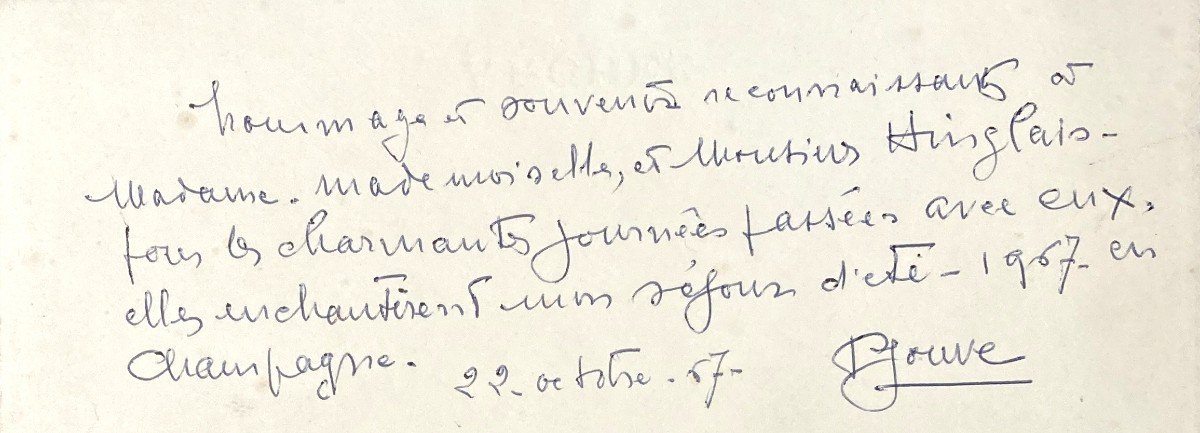 hommage et souvenirs reconnaissants à
Madame. mademoiselle, et Monsieur Hinglais -
pour les charmantes journées passées avec eux.
elles enchantèrent mon séjour d'été - 1967 - en
Champagne. 22 - octobre . 67 - PJouve